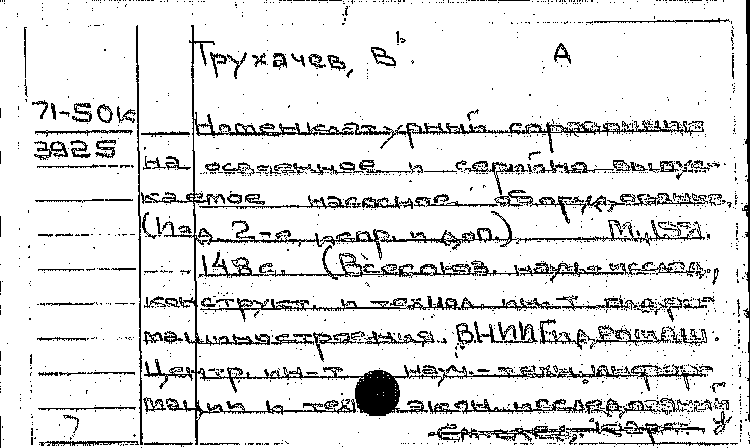 Трухачев, В. А
71-50к
3925
Номенклатурный справочник
на освоенное и серийно выпус-
каемое насосное оборудование,
(Изд. 2-е, испр. и доп.) М.,
148 с. (Всесоюз. науч.-исслед.,
конструкт. и технол. ин-т гидро-
машиностроения. ВНИИГидромаш.
Центр. ин-т науч.-техн. информа-
мации и техн. экон. исследований
См. след. карт.
7